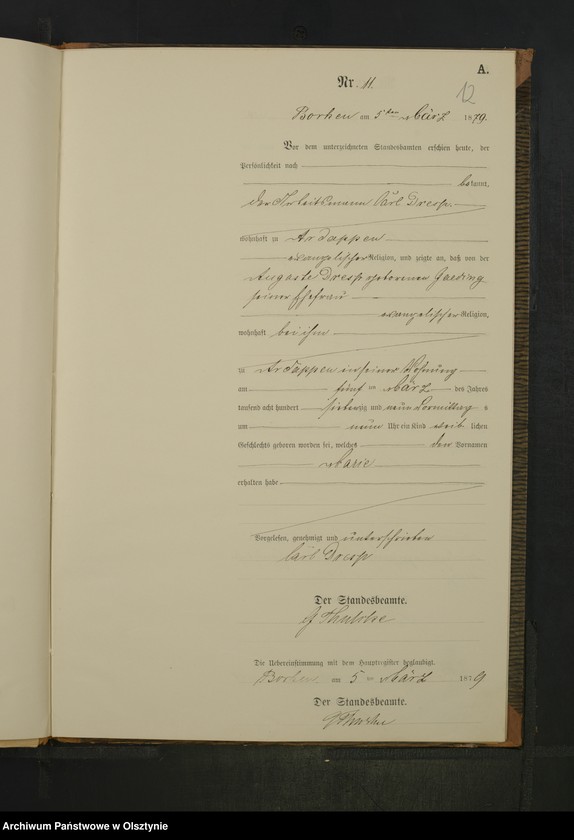 A.
Nr. 11.
12
Borken am 5ten März 1879.
Vor dem unterzeichneten Standesbeamten erschien heute, der
Persönlichkeit nach
bekannt,
der Arbeitsmann Carl Dresp
wohnhaft zu Ardappen
evangelischer Religion, und zeigte an, daß von der
Auguste Dresp geborenen
seiner Ehefrau
evangelischer Religion,
wohnhaft bei ihm
zu Ardappen in seiner Wohnung
am fünf ten März des Jahres
tausend acht hundert siebenzig und neun Vormittag s
um neun Uhr ein Kind weib lichen
Geschlechts geboren worden sei, welches den Vornamen
Marie
erhalten habe
Vorgelesen, genehmigt und unterschrieben
Carl Dresp
Der Standesbeamte.
Die Uebereinstimmung mit dem Hauptregister beglaubigt.
Borken am 5 ten März 1879
Der Standesbeamte.
Archiwum Państwowe w Olsztynie